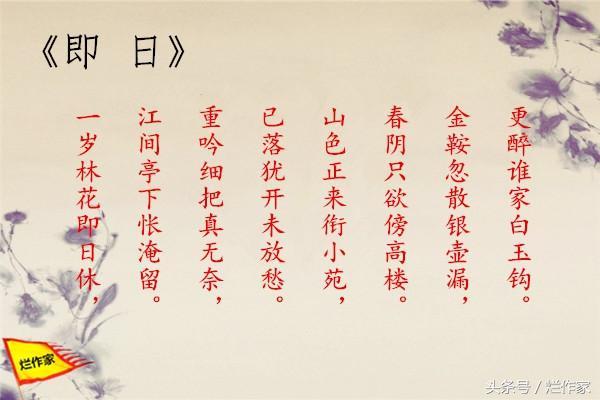 《即 日》
一岁林花即日休，
江间亭下怅淹留。
重吟细把真无奈，
已落犹开未放愁。
山色正来衔小苑，
春阴只欲傍高楼。
金鞍忽散银壶漏，
更醉谁家白玉钩。
烂作家
头条号 / 烂作家